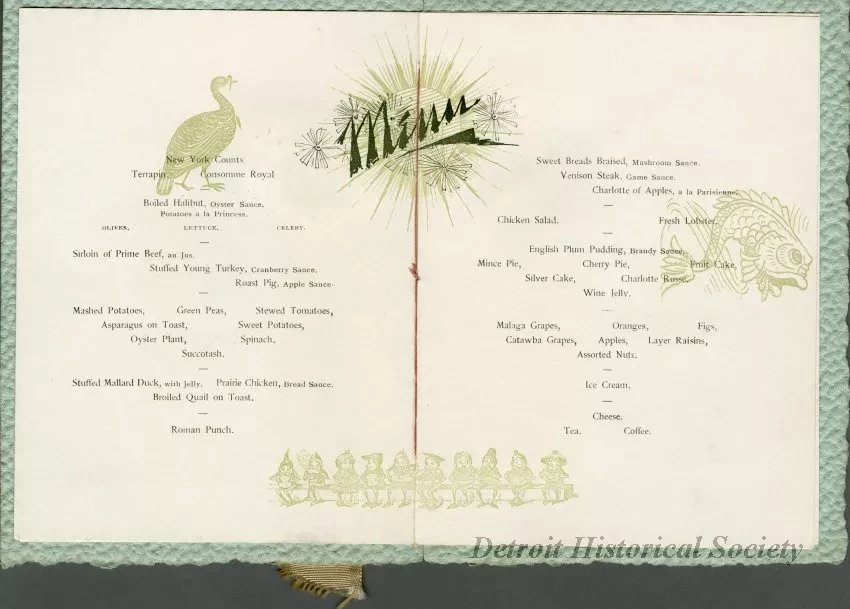 Menu
New York Counts
Terrapin. Consomme Royal
Boiled Halibut, Oyster Sauce.
Potatoes a la Princess.
OLIVES. LETTUCE. CELERY.
Sirloin of Prime Beef, au Jus.
Stuffed Young Turkey, Cranberry Sauce.
Roast Pig, Apple Sauce.
Mashed Potatoes, Green Peas, Stewed Tomatoes,
Asparagus on Toast, Sweet Potatoes,
Oyster Plant, Spinach,
Succotash.
Stuffed Mallard Duck, with Jelly. Prairie Chicken, Bread Sauce.
Broiled Quail on Toast.
Roman Punch.
Sweet Breads Braised, Mushroom Sauce.
Venison Steak, Game Sauce.
Charlotte of Apples, a la Parisienne.
Chicken Salad. Fresh Lobster.
English Plum Pudding, Brandy Sauce.
Mince Pie, Cherry Pie, Fruit Cake,
Silver Cake, Charlotte Russe,
Wine Jelly.
Malaga Grapes, Oranges, Figs,
Catawba Grapes, Apples, Layer Raisins,
Assorted Nuts.
Ice Cream.
Cheese.
Tea. Coffee.
Detroit Historical Society